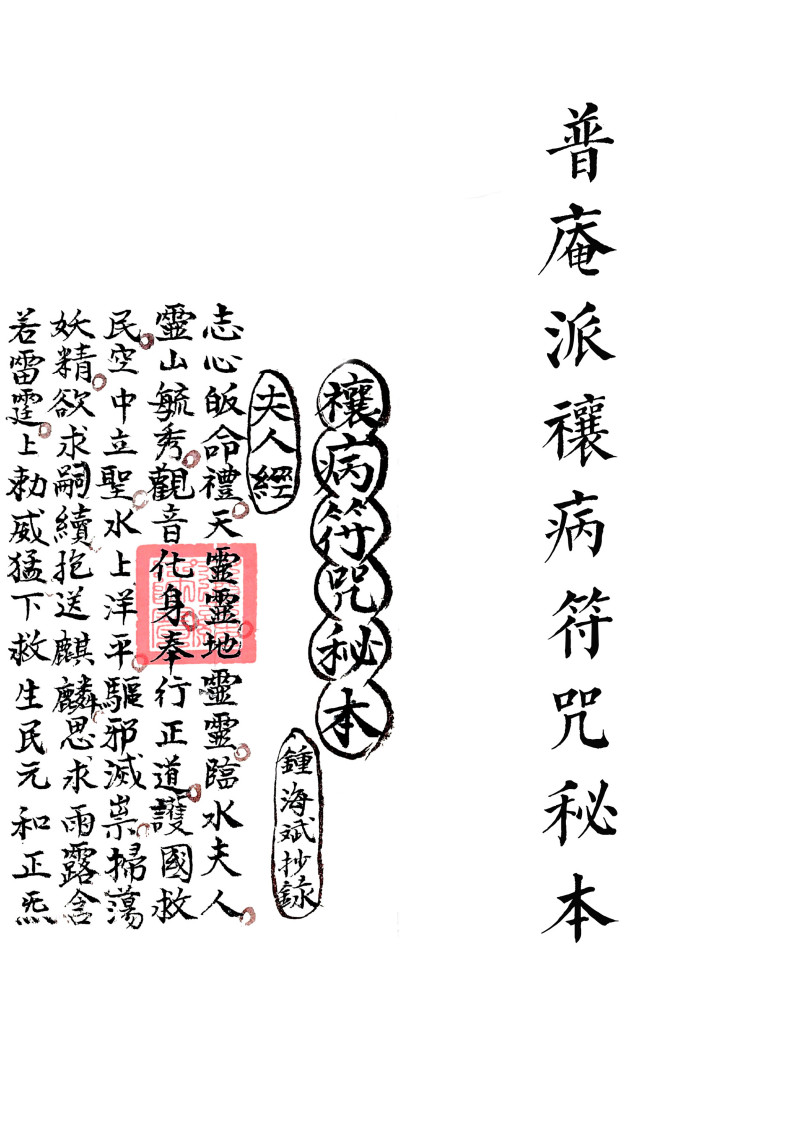 普庵派禳病符咒秘本
禳病符咒秘本
鍾海斌抄錄
夫人經
志心皈命禮天靈靈地靈靈臨水夫人
靈山毓秀觀音化身奉行正道護國救
民空中立聖水上洋平驅邪滅祟掃蕩
妖精欲求嗣續抱送麒麟思求雨露含
若雷霆上勅威猛下救生民元和正炁